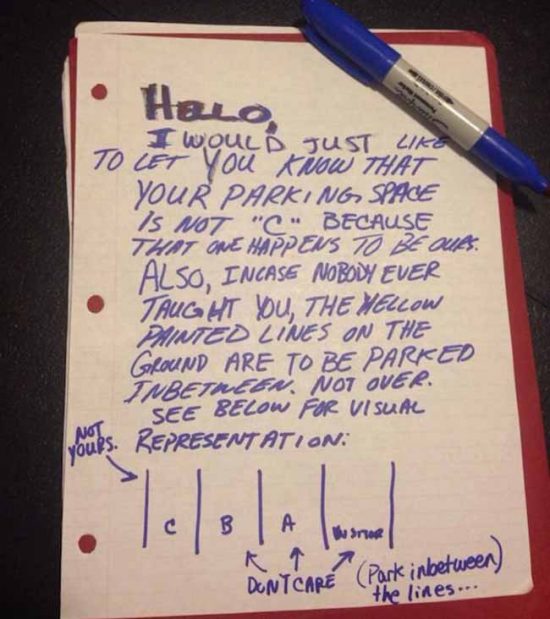 HELLO,
I WOULD JUST LIKE
TO LET YOU KNOW THAT
YOUR PARKING SPACE
IS NOT "C" BECAUSE
THAT ONE HAPPENS TO BE OURS.
ALSO, INCASE NOBODY EVER
TAUGHT YOU, THE YELLOW
PAINTED LINES ON THE
GROUND ARE TO BE PARKED
INBETWEEN. NOT OVER.
SEE BELOW FOR VISUAL
REPRESENTATION:
NOT
YOURS.
C B A VISITOR
DONT CARE
(Park inbetween)
the lines...